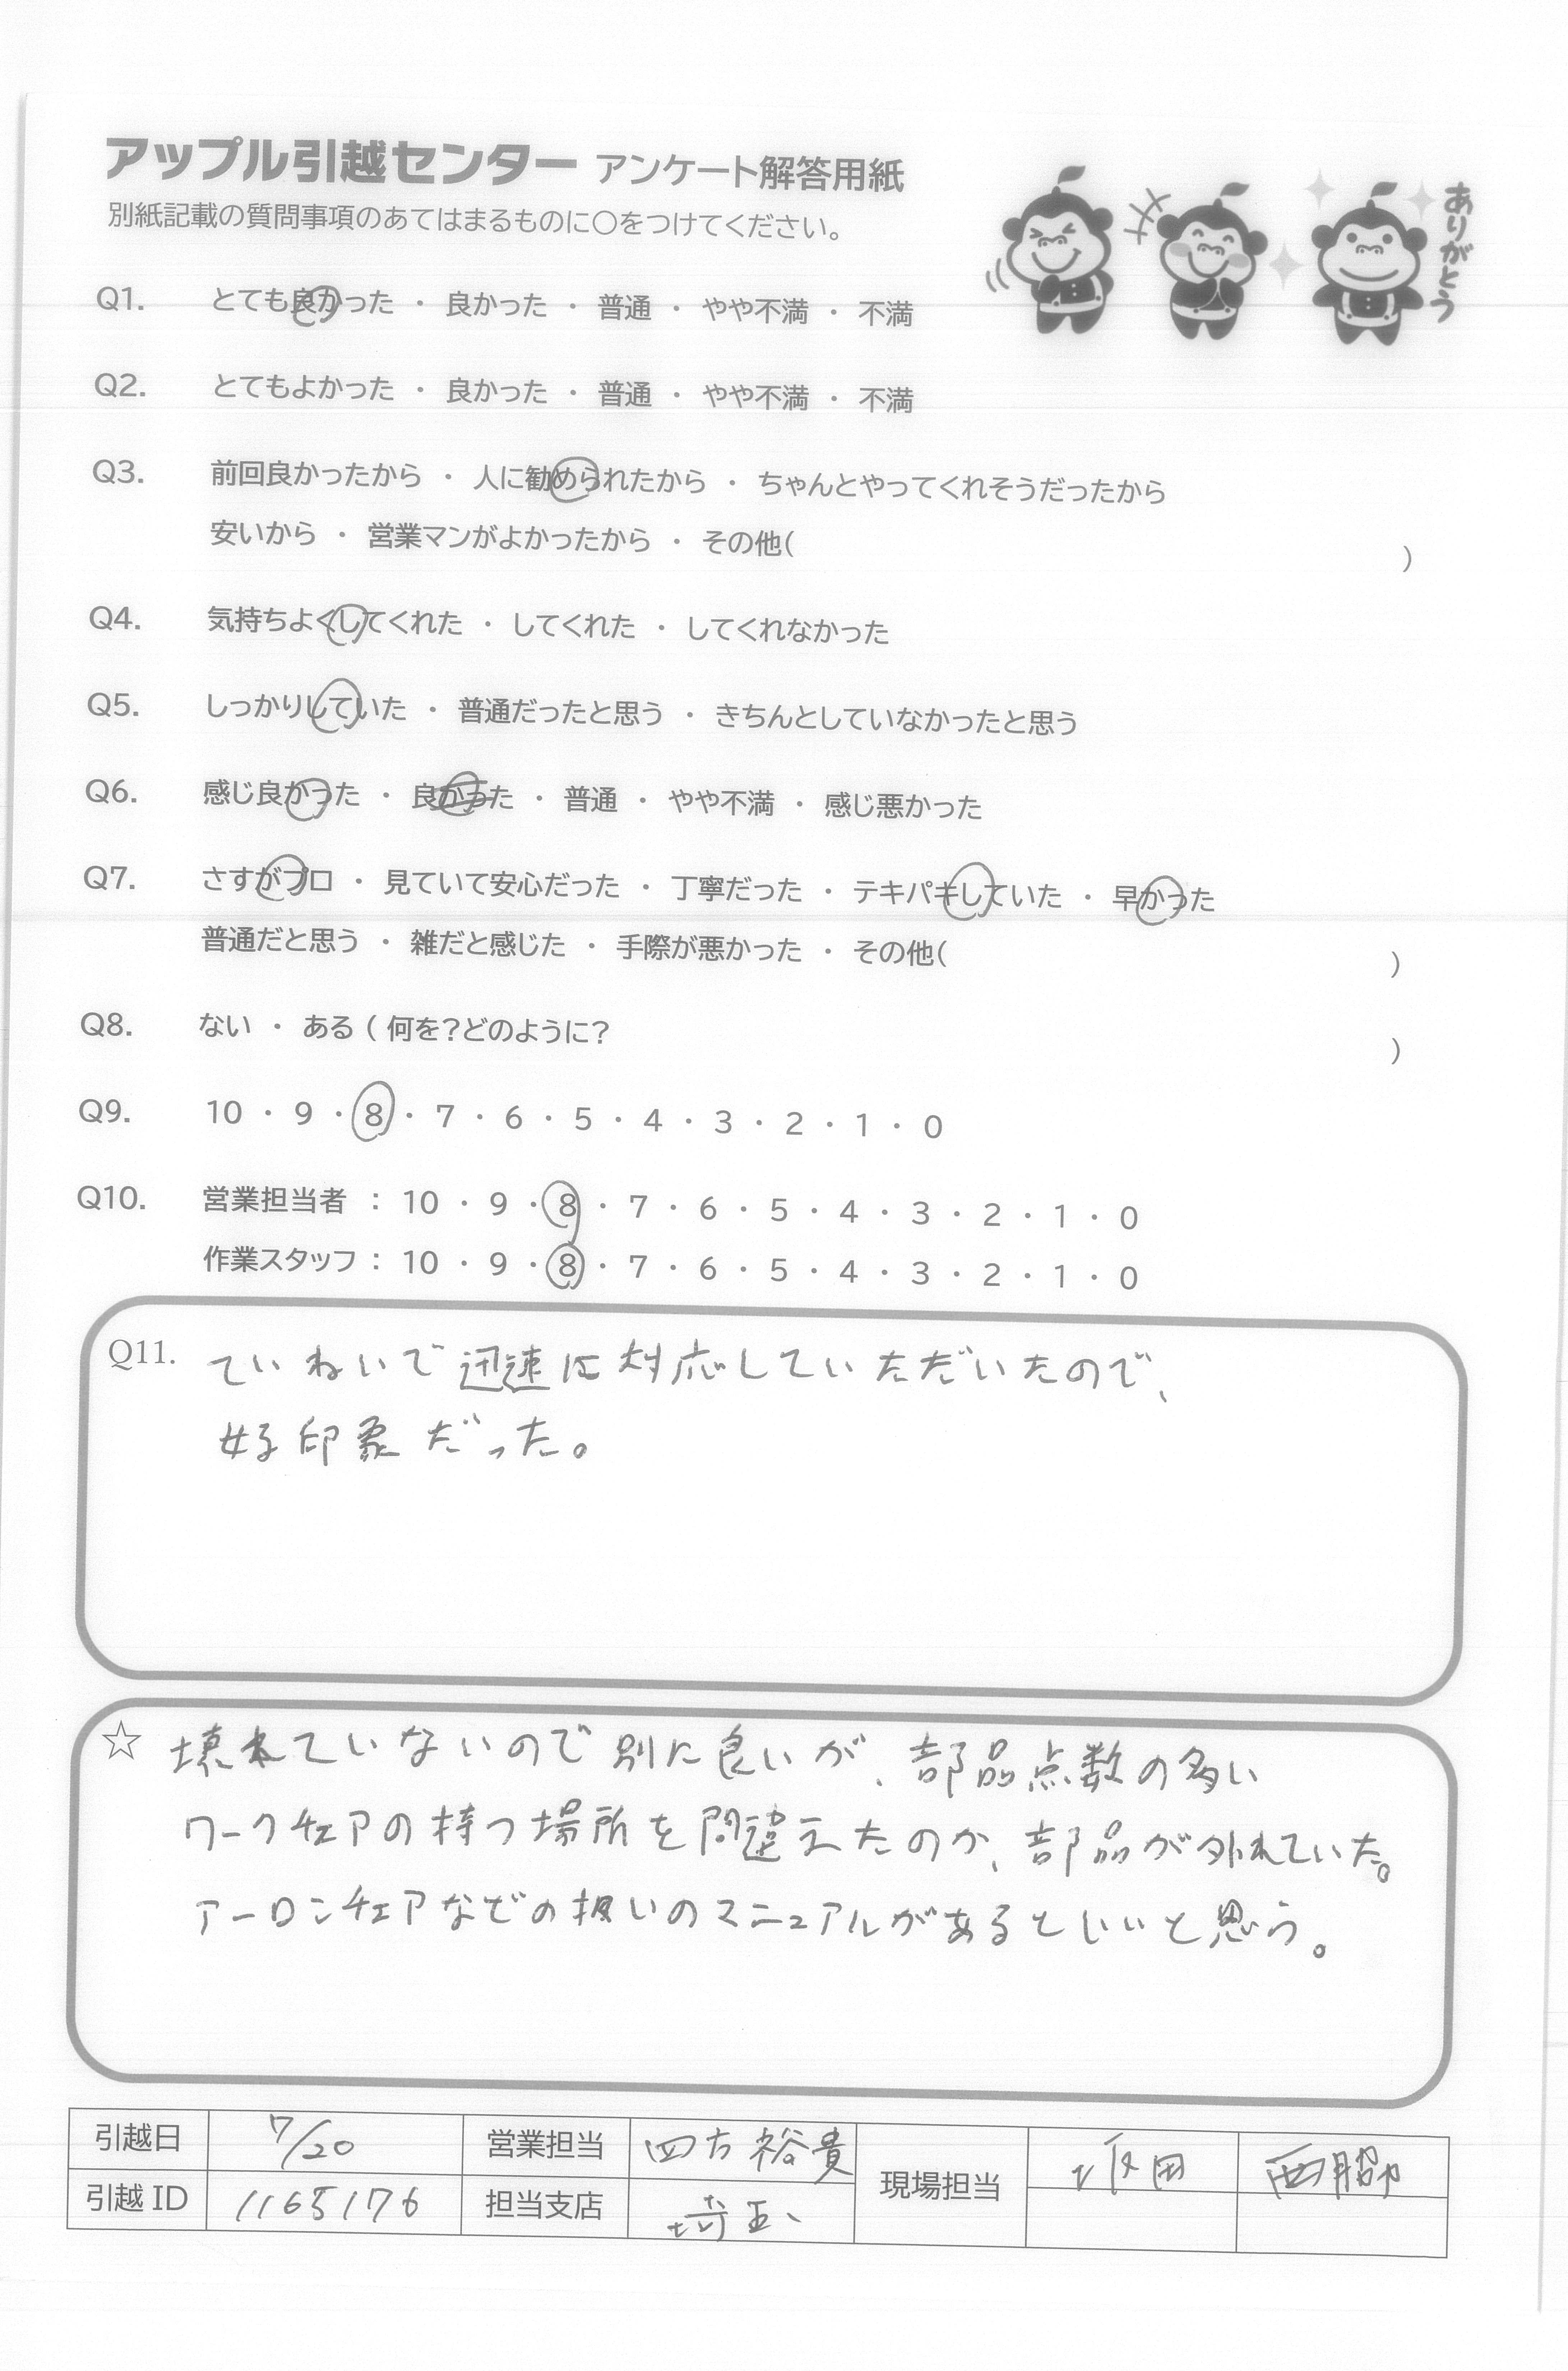 アップル引越センター アンケート解答用紙
別紙記載の質問事項のあてはまるものに○をつけてください。
ありがとう
Q1. とても良かった ・ 良かった ・ 普通 ・ やや不満 ・ 不満
Q2. とてもよかった ・ 良かった ・ 普通 ・ やや不満 ・ 不満
Q3. 前回良かったから ・ 人に勧められたから ・ ちゃんとやってくれそうだったから
安いから ・ 営業マンがよかったから ・ その他( )
Q4. 気持ちよくしてくれた ・ してくれた ・ してくれなかった
Q5. しっかりしていた ・ 普通だったと思う ・ きちんとしていなかったと思う
Q6. 感じ良かった ・ 良かった ・ 普通 ・ やや不満 ・ 感じ悪かった
Q7. さすがプロ ・ 見ていて安心だった ・ 丁寧だった ・ テキパキしていた ・ 早かった
普通だと思う ・ 雑だと感じた ・ 手際が悪かった ・ その他( )
Q8. ない ・ ある ( 何を?どのように? )
Q9. 10 ・ 9 ・ 8 ・ 7 ・ 6 ・ 5 ・ 4 ・ 3 ・ 2 ・ 1 ・ 0
Q10. 営業担当者 : 10 ・ 9 ・ 8 ・ 7 ・ 6 ・ 5 ・ 4 ・ 3 ・ 2 ・ 1 ・ 0
作業スタッフ : 10 ・ 9 ・ 8 ・ 7 ・ 6 ・ 5 ・ 4 ・ 3 ・ 2 ・ 1 ・ 0
Q11. ていねいで迅速に対応していただいたので、
好印象だった。
☆ 壊れていないので別に良いが、部品点数の多い
ワークチェアの持つ場所を間違えたのか、部品が外れていた。
アーロンチェアなどの扱いのマニュアルがあるといいと思う。
引越日 7/20 営業担当 四方裕貴 現場担当 坂田 西脇
引越 ID 1165176 担当支店 埼玉